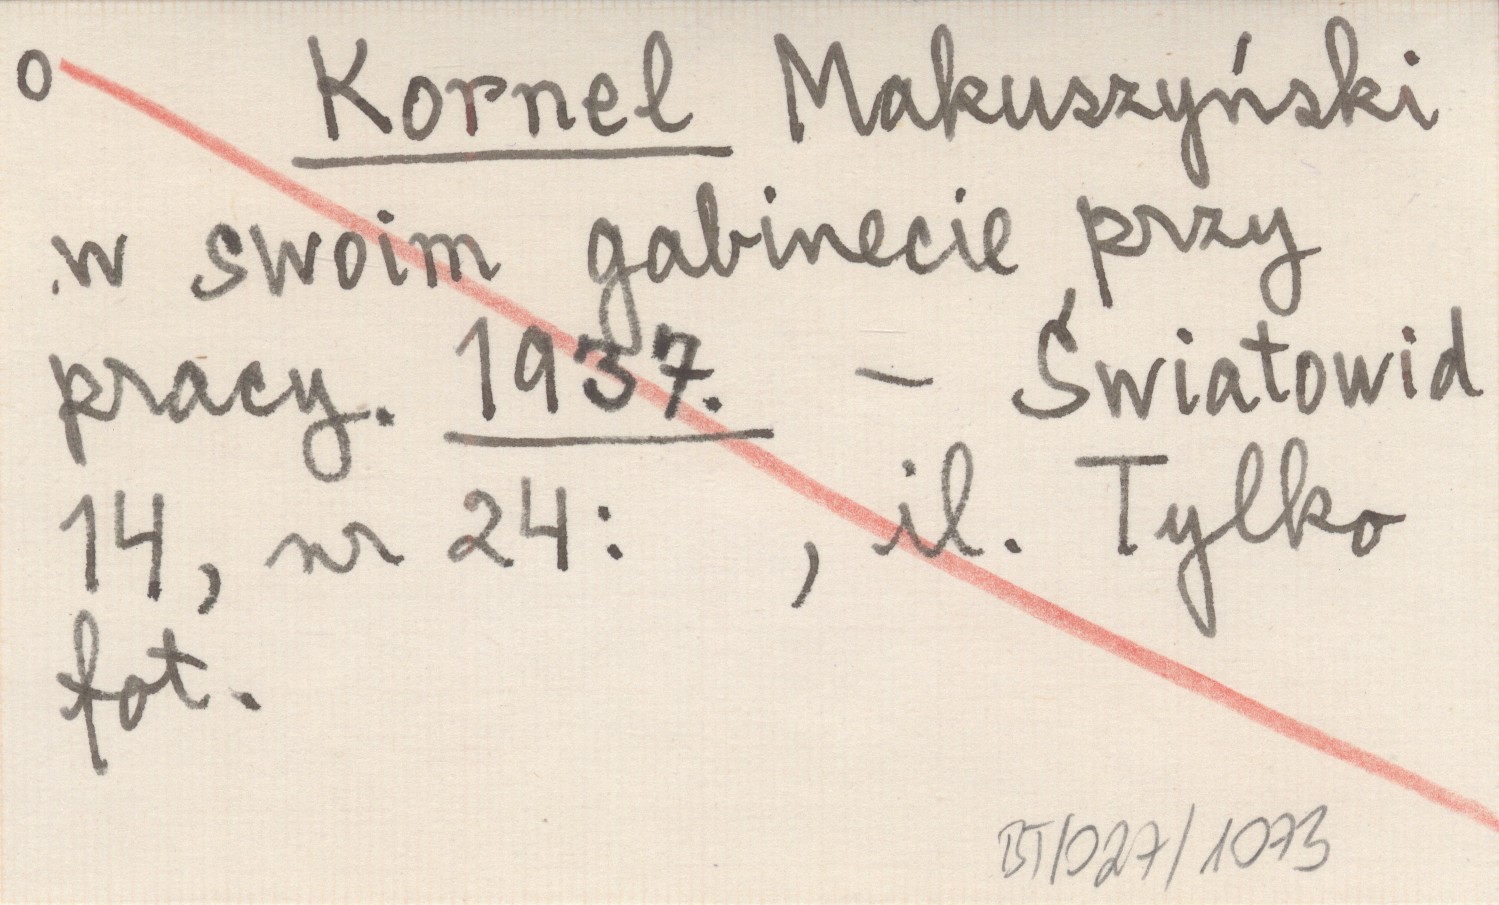 o Kornel Makuszyński
w swoim gabinecie przy
pracy. 1937. – Światowid
14, nr 24: , il. Tylko
fot.
BT/027/1073